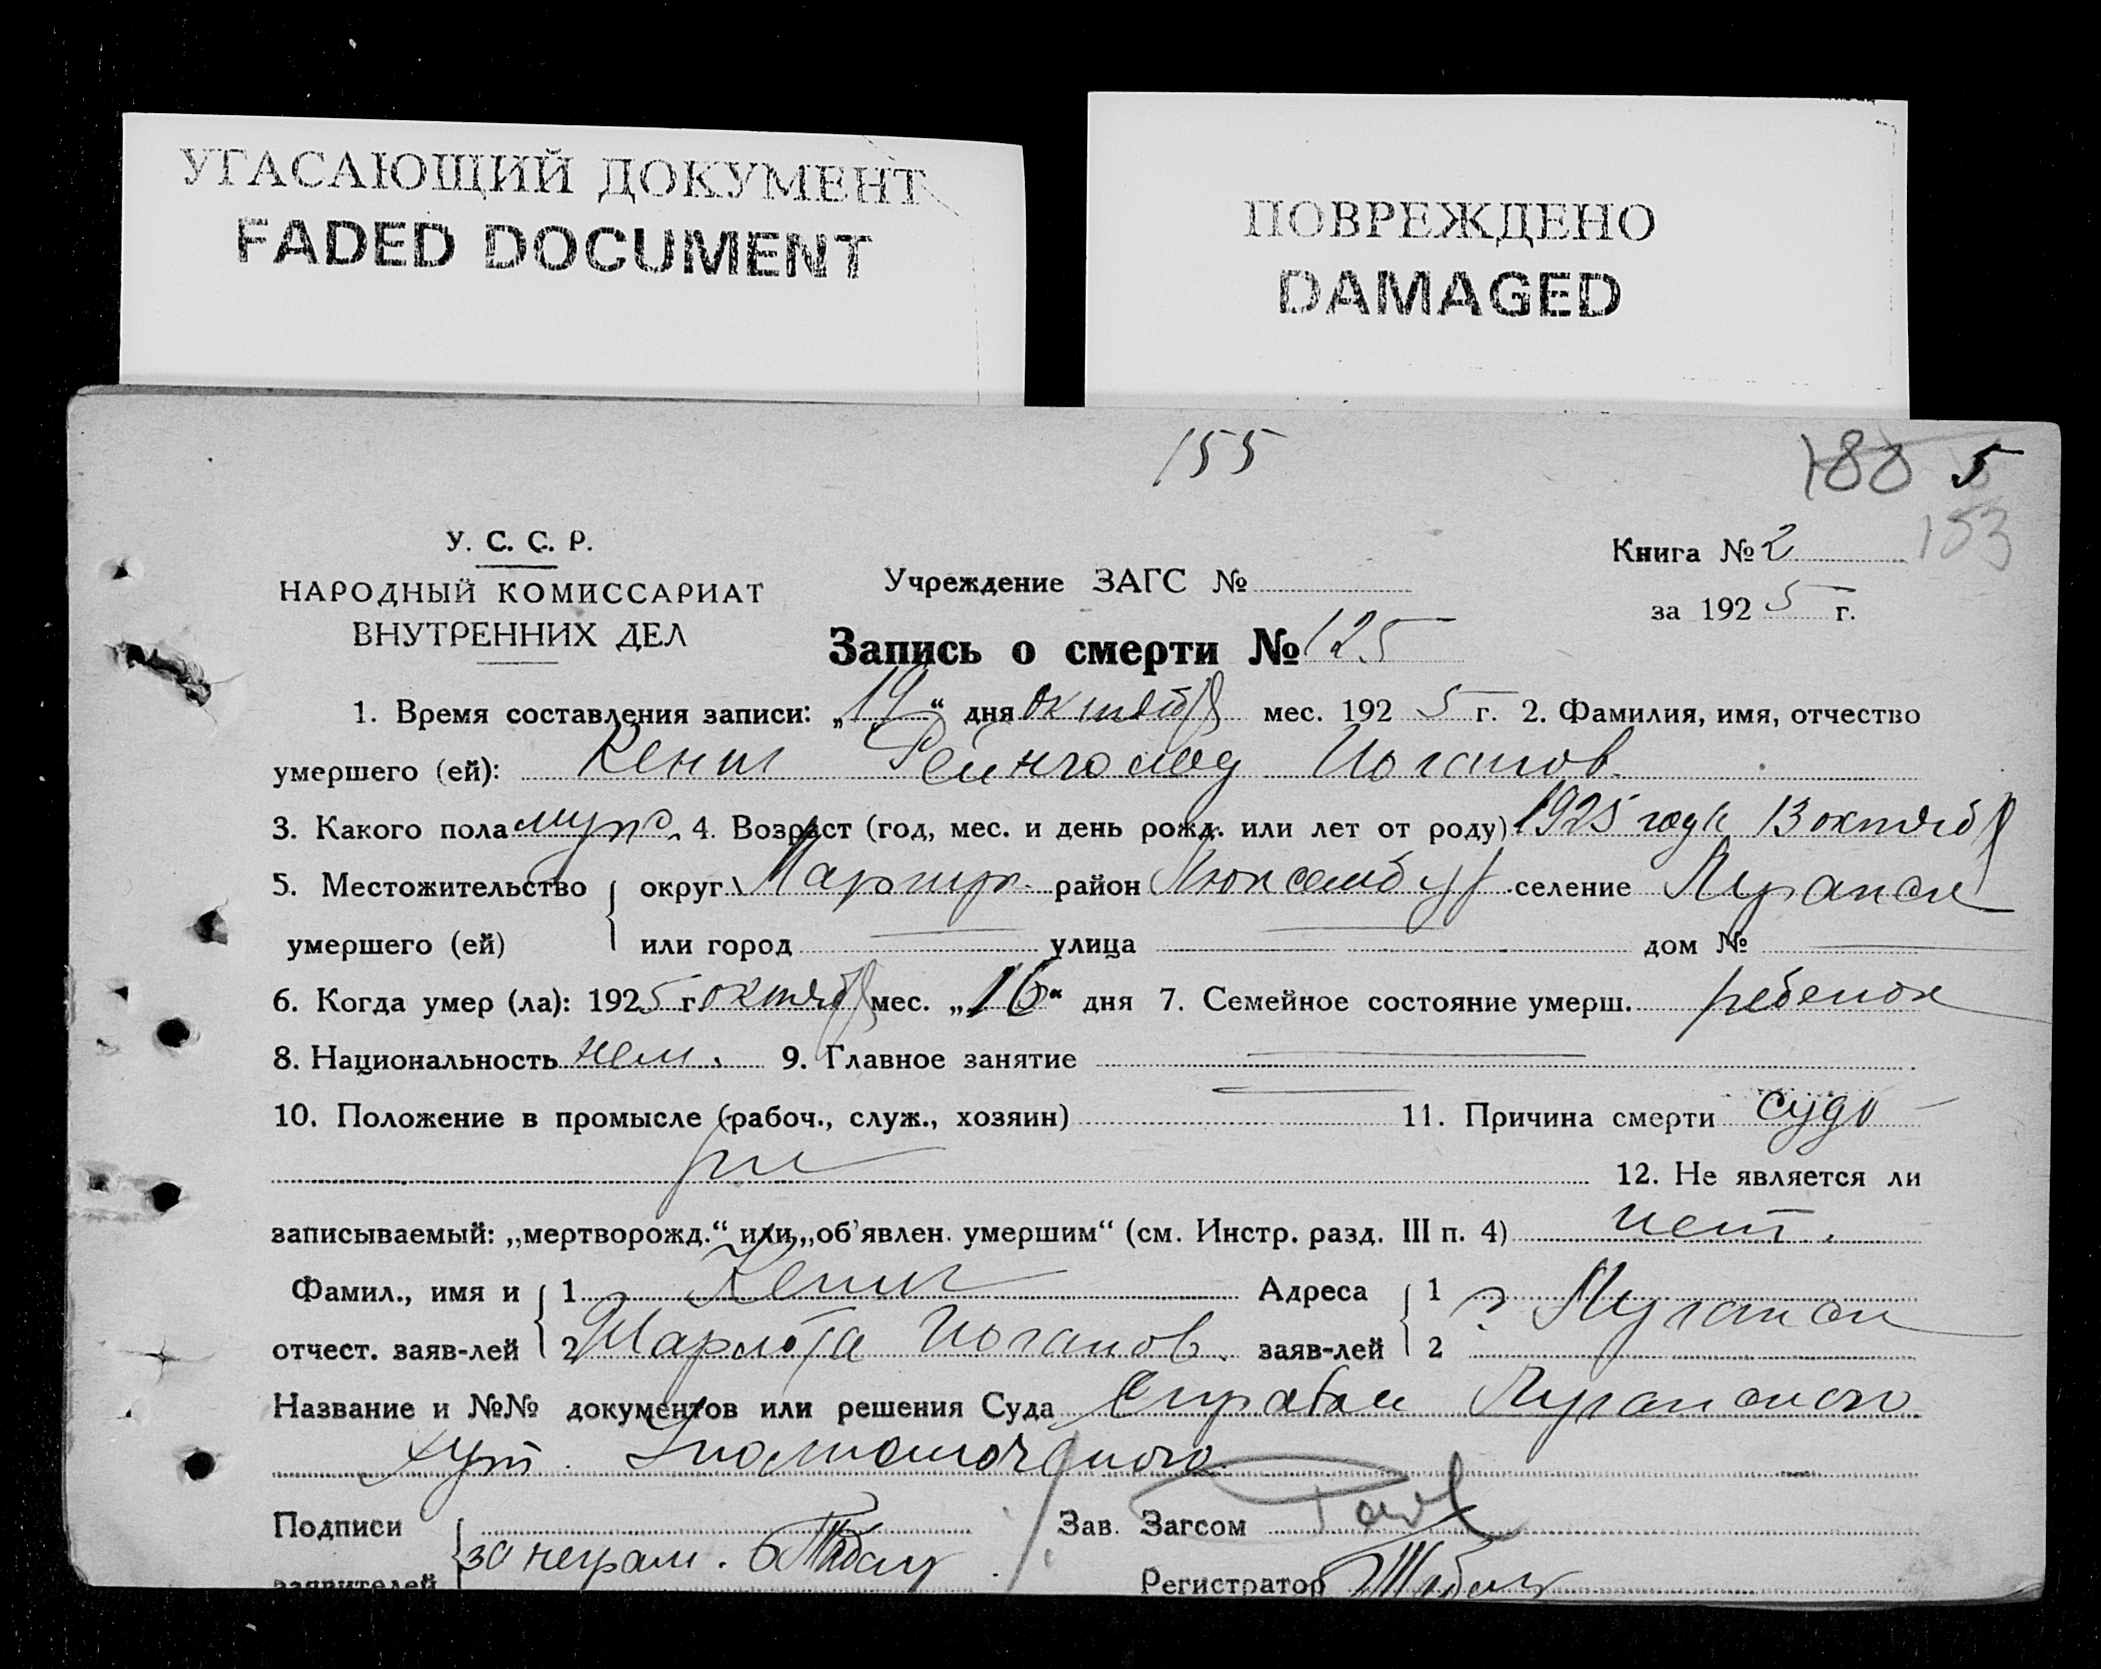 УГАСАЮЩИЙ ДОКУМЕНТ
FADED DOCUMENT
ПОВРЕЖДЕНО
DAMAGED
155
188 5
153
У. С. С. Р.
НАРОДНЫЙ КОМИССАРИАТ
ВНУТРЕННИХ ДЕЛ
Учреждение ЗАГС №
Книга № 2
за 1925 г.
Запись о смерти № 125
1. Время составления записи: „19“ дня октября мес. 1925 г. 2. Фамилия, имя, отчество
умершего (ей): Кениг Рейнгольд Иоганов.
3. Какого пола муж. 4. Возраст (год, мес. и день рожд. или лет от роду) 1925 года 13 октября
5. Местожительство округ Мариуп. район Люксембург селение
умершего (ей) или город улица дом №
6. Когда умер (ла): 1925 г. октября мес. „16“ дня 7. Семейное состояние умерш. ребенок
8. Национальность нем. 9. Главное занятие
10. Положение в промысле (рабоч., служ., хозяин) 11. Причина смерти судо
рги 12. Не является ли
записываемый: „мертворожд.“ или „об'явлен. умершим“ (см. Инстр. разд. III п. 4) нет.
Фамил., имя и 1 Кениг Адреса 1
отчест. заяв-лей 2 Шарлота Иоганов. заяв-лей 2
Название и №№ документов или решения Суда Справка
хут. Уполномоченого
Подписи Зав. Загсом
заявителей за неграм. Регистратор